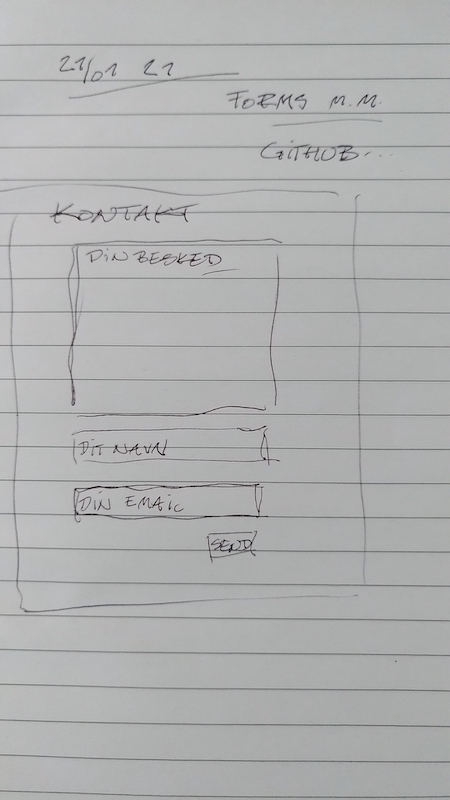 21/01 21
FORMS M.M.
GITHUB...
KONTAKT
DIN BESKED
DIT NAVN
DIN EMAIL
SEND